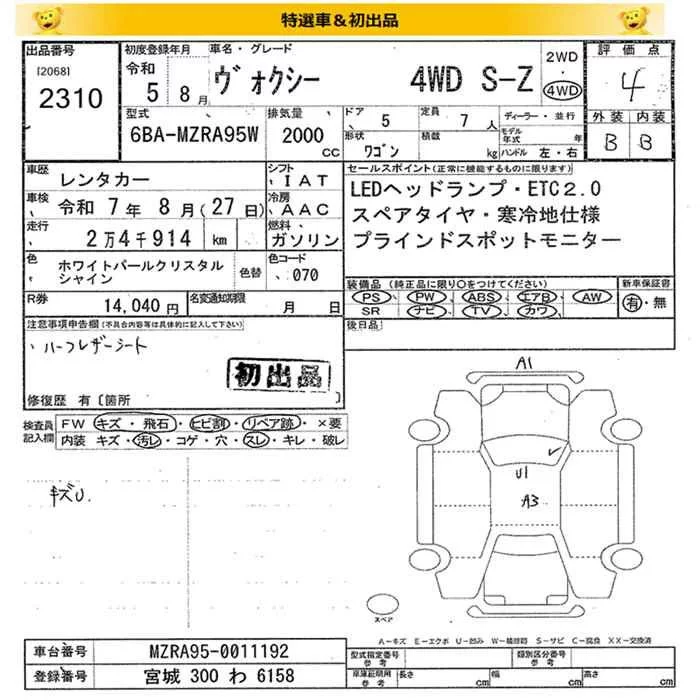 特選車＆初出品
出品番号
[2068]
2310
初度登録年月
令和
5 8月
車名・グレード
ヴォクシー 4WD S-Z
2WD
4WD
評価点
4
外装 内装
B B
型式
6BA-MZRA95W
排気量
2000
CC
ドア
5
定員
7人
ディーラー・並行
形状
ワゴン
積載
kg
モデル年式 年
ハンドル 左・右
車歴
レンタカー
シフト
IAT
車検
令和 7年 8月(27日)
冷房
AAC
走行
2万4千914 km
燃料
ガソリン
色
ホワイトパールクリスタル
シャイン
色替
色コード
070
R券
14,040円
名変通知期限
月 日
セールスポイント(正常に機能するものに限ります)
LEDヘッドランプ・ETC2.0
スペアタイヤ・寒冷地仕様
ブラインドスポットモニター
装備品(純正品に限り○をつけてください)
PS PW ABS エアB AW
SR ナビ TV カワ
新車保証書
有・無
後日品
注意事項申告欄(不具合内容等は具体的に記入して下さい)
ハーフレザーシート
初出品
修復歴 有〔箇所 〕
検査員
記入欄
FW キズ・飛石・ヒビ割・リペア跡・×要
内装 キズ・汚レ・コゲ・穴・スレ・キレ・破レ
キズU.
A1
U1
A3
スペア
A-キズ E-エクボ U-凹み W-補修跡 S-サビ C-腐食 XX-交換済
車台番号
MZRA95-0011192
登録番号
宮城 300 わ 6158
型式指定番号
参考
類別区分番号
参考
車庫証明用
参考
長さ cm 幅 cm 高さ cm